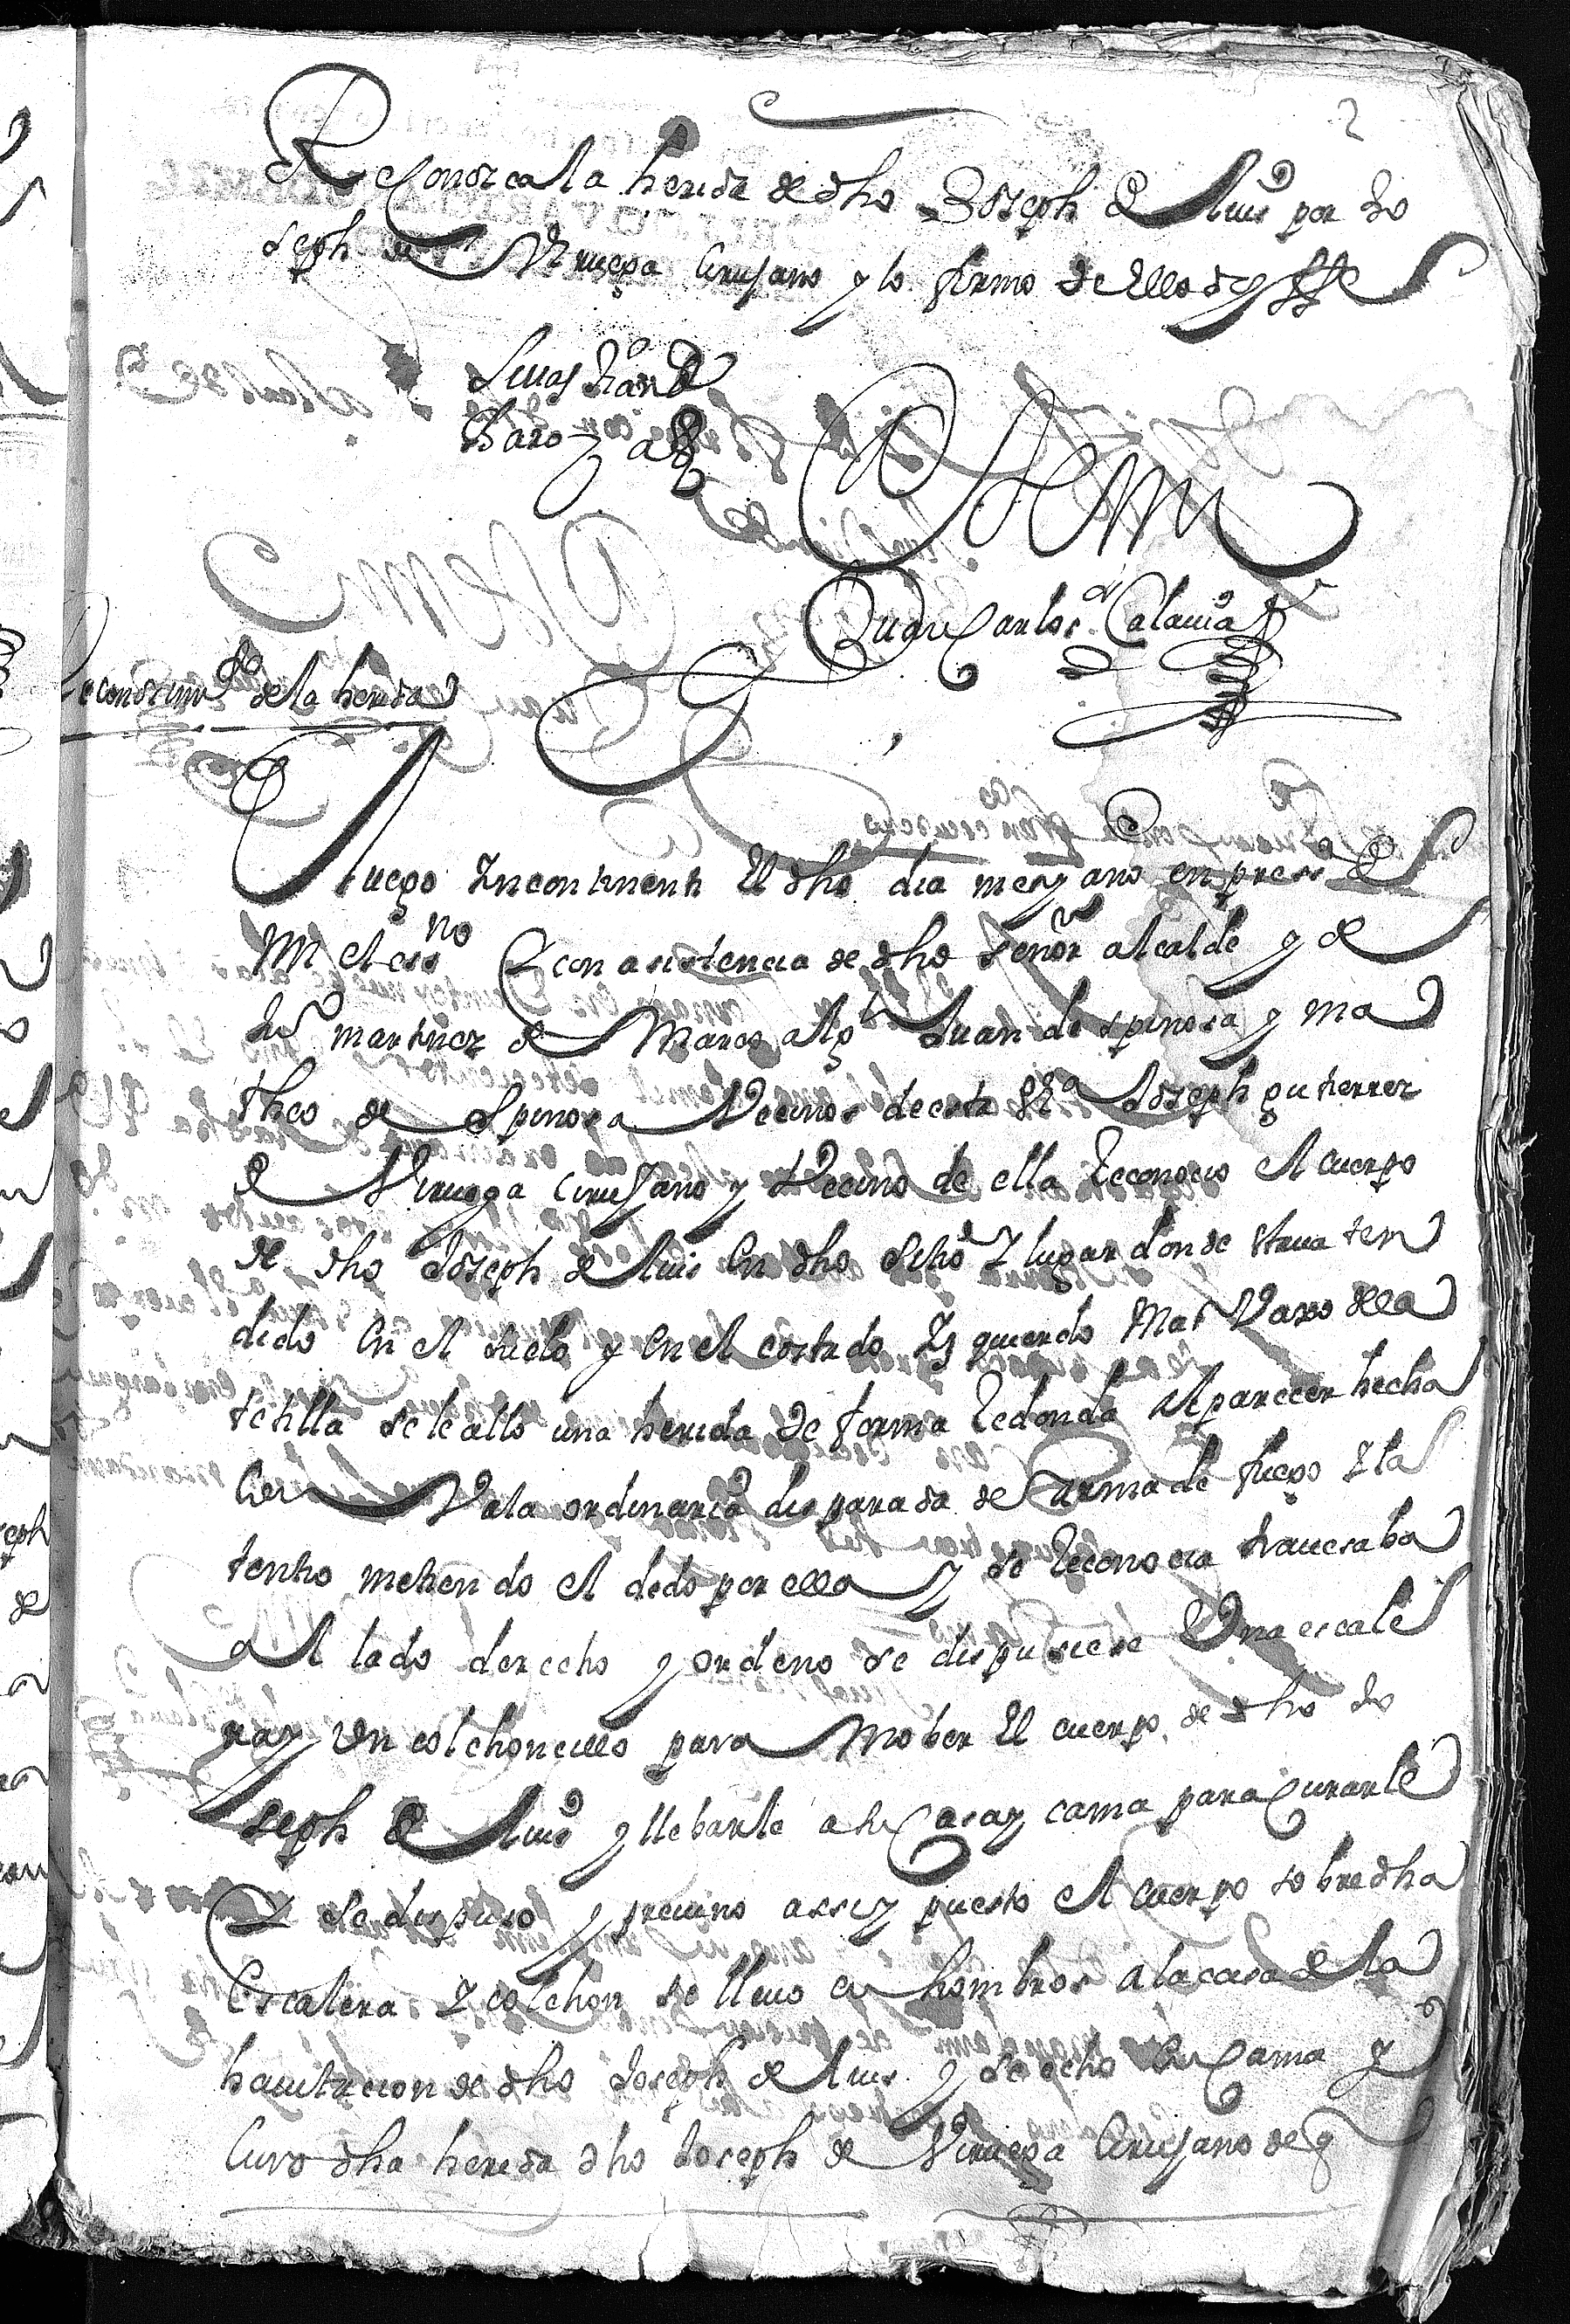 2
Reconozca la herida de dho Joseph de Luis por Jo
seph de Virruega Cirujano y lo firmo de Ello doy ffee
Lucas
Haro
Ante Mi
Juan Carlos de Catania
Reconozimto de la herida
Luego Yncontinenti El dho dia mes y ano en press.a de
Mi el essno y con asistencia de dho señor alcalde y de
Ju.o martinez de Marco Juan de espinosa y ma
theo de espinosa Vecinos de esta Joseph gutierrez
de Virruega Cirujano y Vecino de ella Reconocio el cuerpo
de dho Joseph de Luis en dho sitio Y lugar donde estaua ten
dido en el suelo y en el costado Yzquierdo Mas Vaxo de la
tetilla se le allo una herida de forma Redonda al parecer hecha
con Vala ordinaria disparada de arma de fuego Y la
tento metiendo el dedo por ella y se Reconocia trauesaba
al lado derecho y ordeno se dispusiese Una escale
ra y Un colchoncillo para mober El cuerpo de dho Jo
seph de Luis y llebarle a su Casa y cama para Curarle
Y se dispuso y preuino assi y puesto el cuerpo sobre dha
Escalera Y colchon se lleuo en hombros a la casa de la
hauitacion de dho Joseph de Luis y se echo en Cama y
Curo dha herida dho Joseph de Virruega Cirujano de q